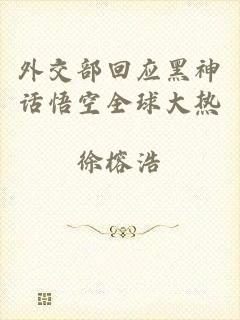 外交部回应黑神
话悟空全球大热
徐榕浩